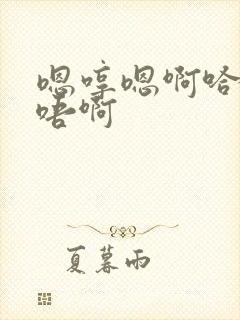 嗯哼嗯啊哈
唔啊
夏暮雨